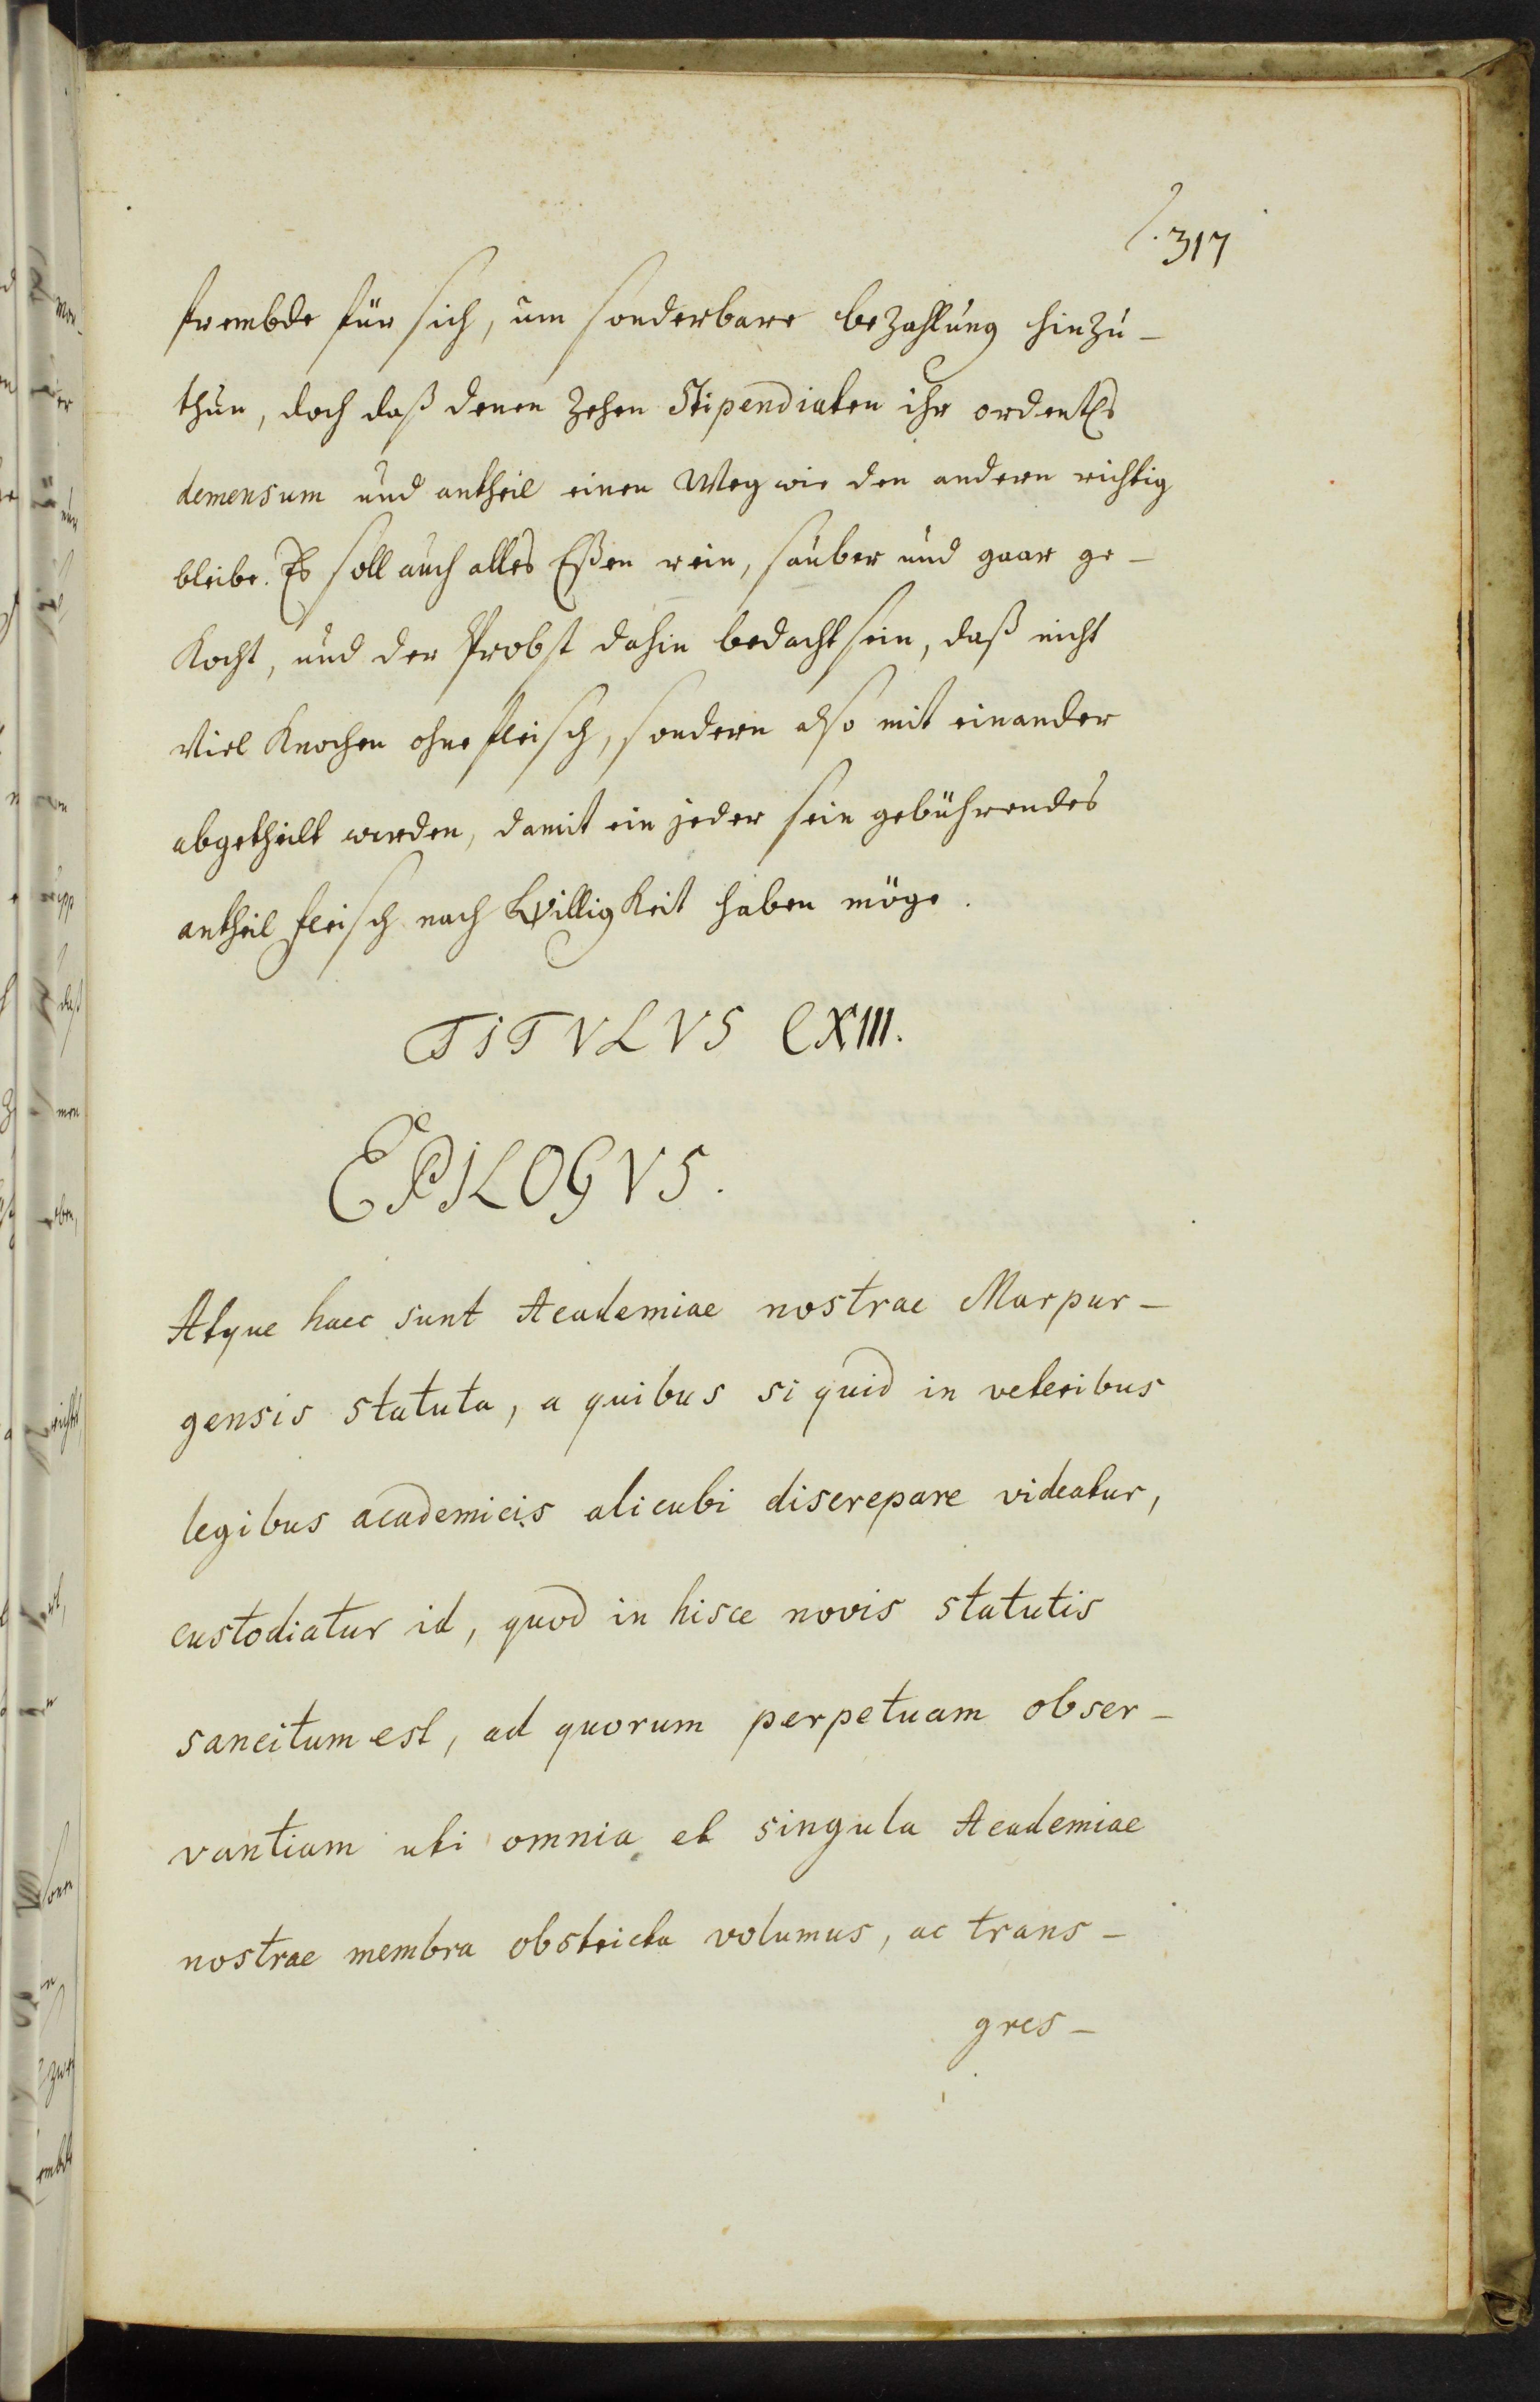 317
frembde für sich, um sonderbare bezahlung hinzu-
thun, doch daß denen zehen Stipendiaten ihr ordentl.
demensum und antheil einen Weg wie den andern richtig
bleibe. Es soll auch alles Eßen rein, sauber und gaar ge-
kocht, und der Probst dahin bedacht sein, daß nicht
viel Knochen ohne fleisch, sondern also mit einander
abgetheilt werden, damit ein jeder sein gebührendes
antheil fleisch nach Billigkeit haben möge.
TITVLVS CXIII.
EPILOGVS.
Atque haec sunt Academiae nostrae Marpur-
gensis statuta, a quibus si quid in veteribus
legibus academicis alicubi discrepare videatur,
custodiatur id, quod in hisce novis statutis
sancitum est, ad quorum perpetuam obser-
vantiam uti omnia et singula Academiae
nostrae membra obstricta volumus, ac trans-
gres-